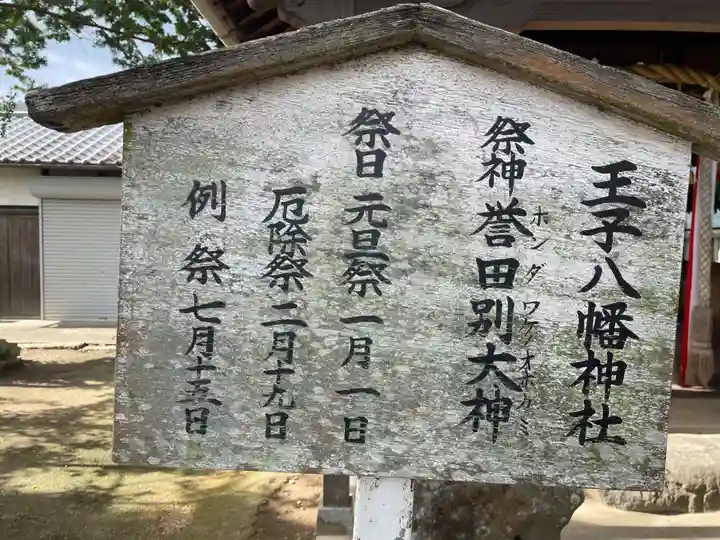 王子八幡神社
祭神 誉田別大神
ホンダワケノオホカミ
祭日 元旦祭 一月一日
厄除祭 二月十九日
例祭 七月十五日